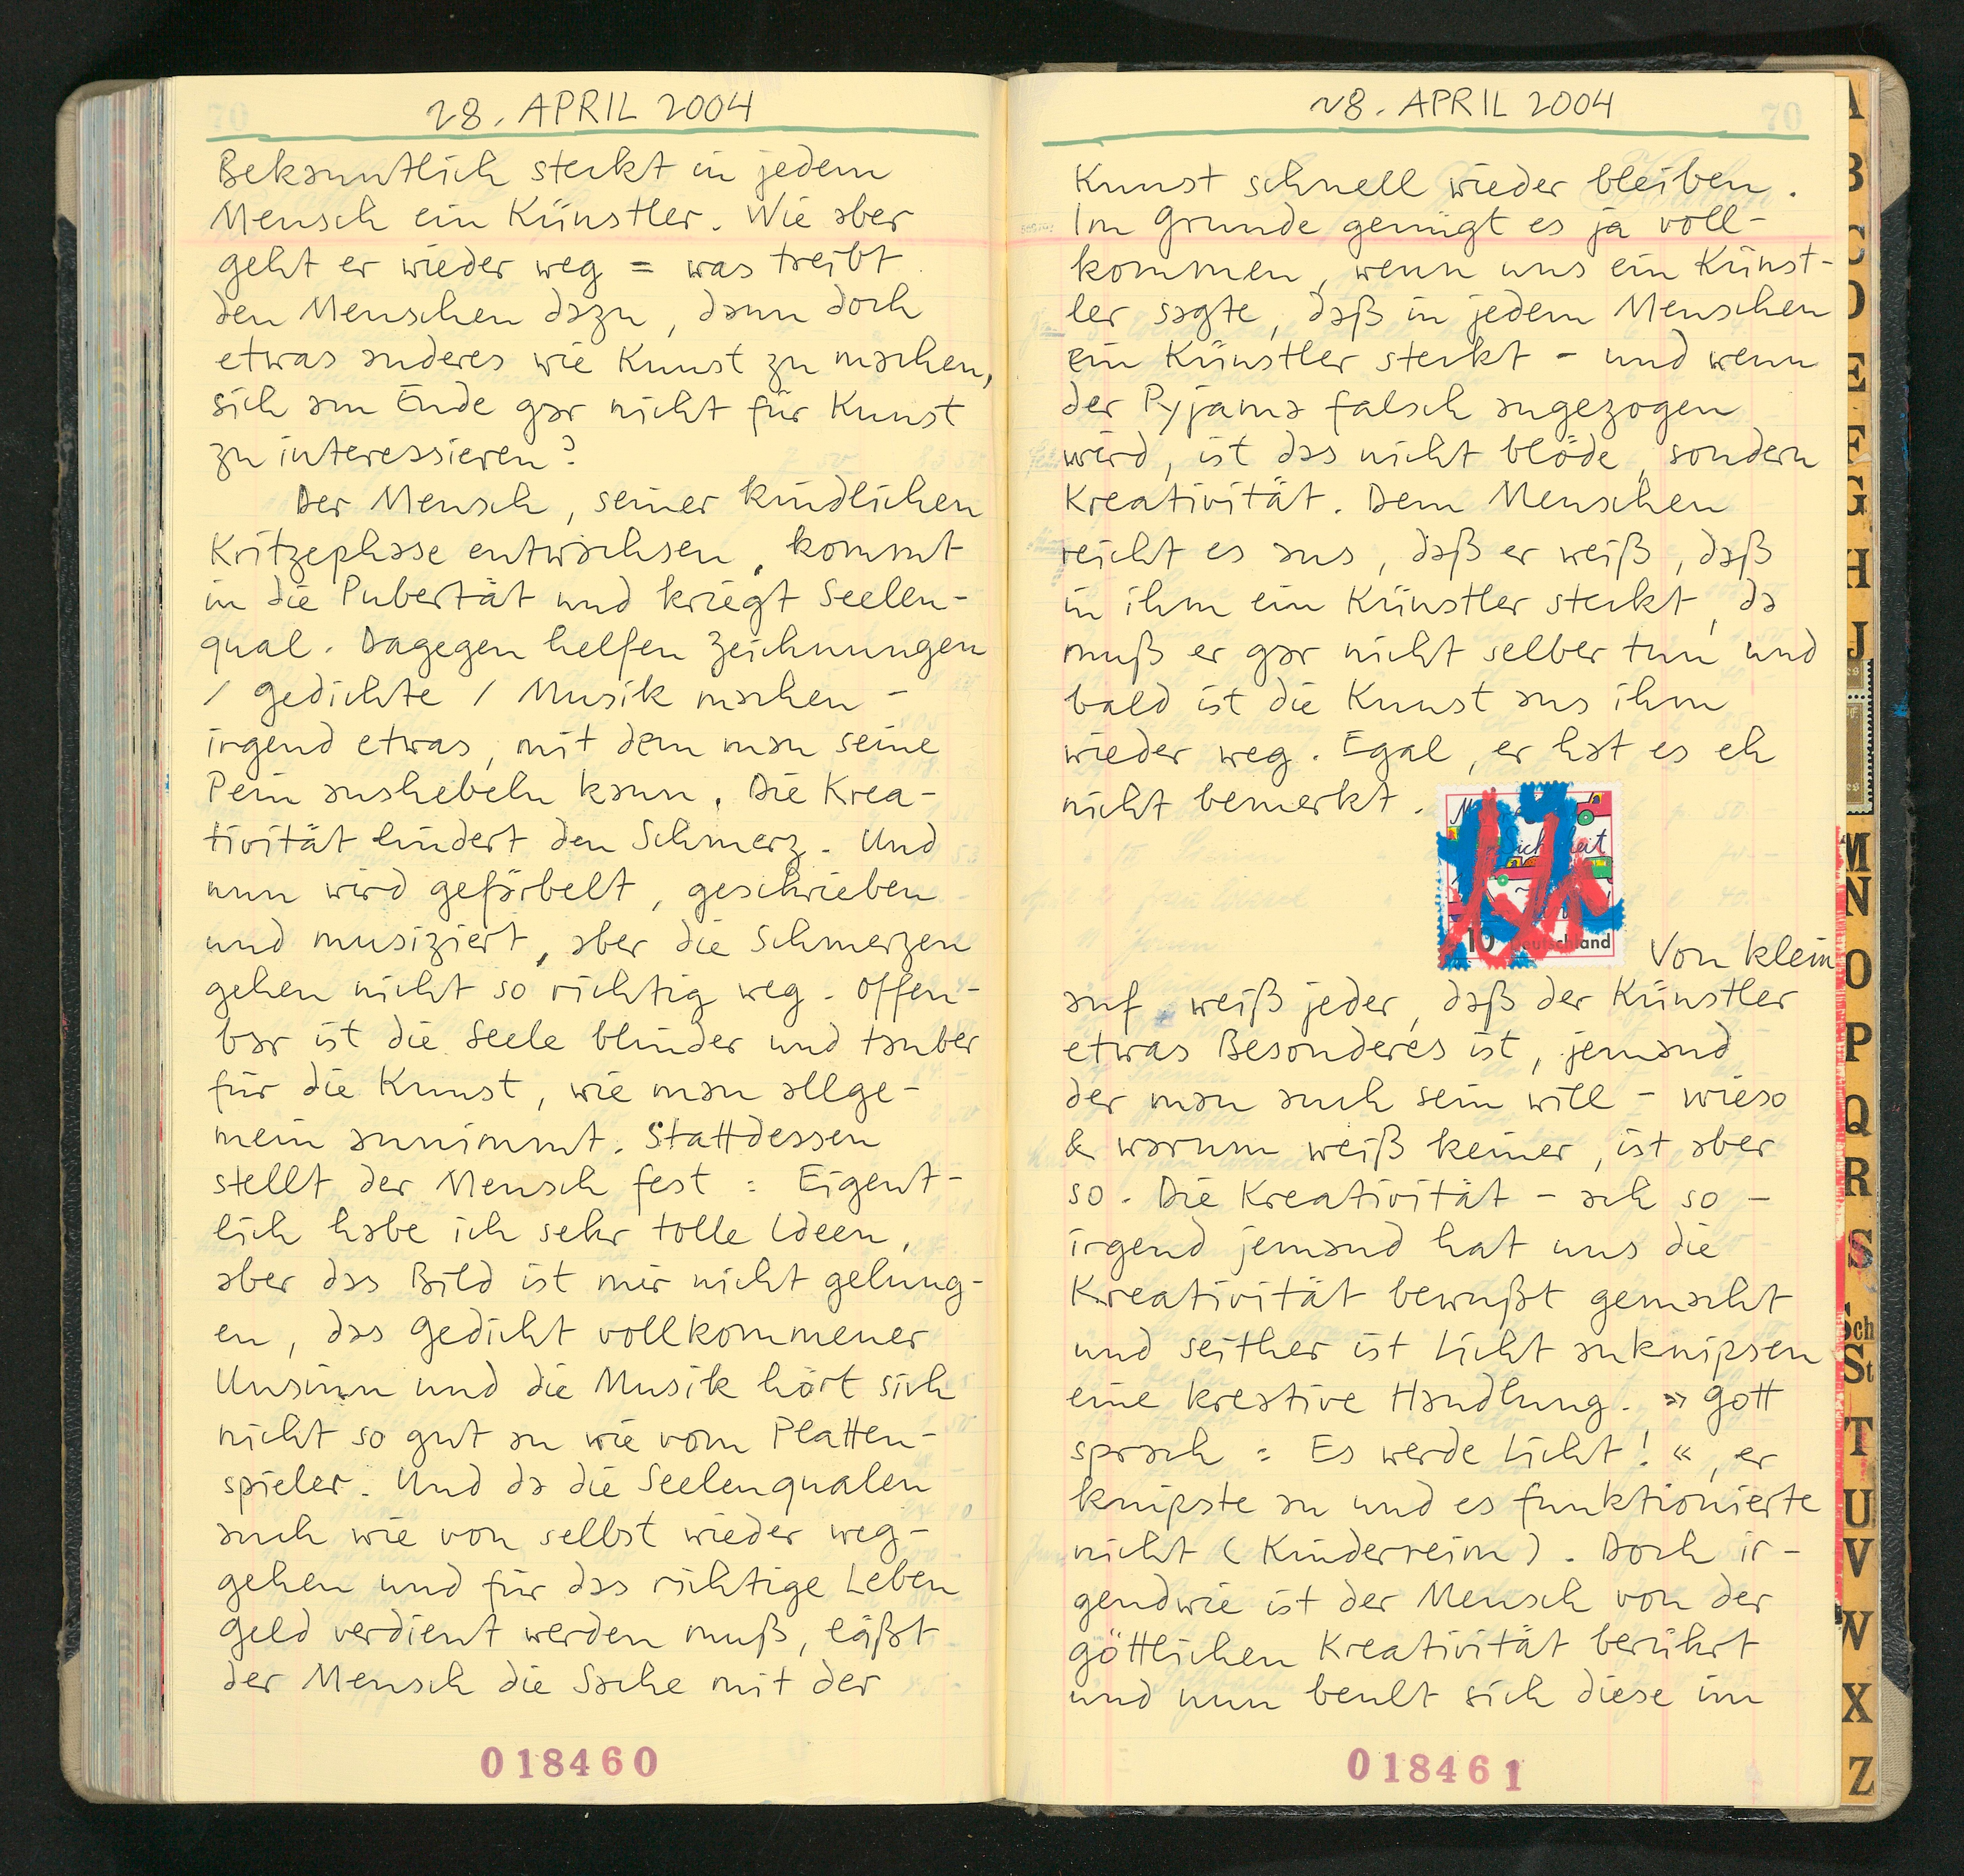 28. APRIL 2004
Bekanntlich steckt in jedem
Mensch ein Künstler. Wie aber
geht er wieder weg = was treibt
den Menschen dazu, dann doch
etwas anderes wie Kunst zu machen,
sich am Ende gar nicht für Kunst
zu interessieren?
Der Mensch, seiner kindlichen
Kritzephase entwachsen, kommt
in die Pubertät und kriegt Seelen-
qual. Dagegen helfen Zeichnungen
/ Gedichte / Musik machen -
irgend etwas, mit dem man seine
Pein aushebeln kann. Die Krea-
tivität lindert den Schmerz. Und
nun wird gefärbelt, geschrieben
und musiziert, aber die Schmerzen
gehen nicht so richtig weg. Offen-
bar ist die Seele blinder und tauber
für die Kunst, wie man allge-
mein annimmt. Stattdessen
stellt der Mensch fest : Eigent-
lich habe ich sehr tolle Ideen,
aber das Bild ist mir nicht gelung-
en, das Gedicht vollkommener
Unsinn und die Musik hört sich
nicht so gut an wie vom Platten-
spieler. Und da die Seelenqualen
auch wie von selbst wieder weg-
gehen und für das richtige Leben
Geld verdient werden muß, läßt
der Mensch die Sache mit der
018460
28. APRIL 2004
70
Kunst schnell wieder bleiben.
Im Grunde genügt es ja voll-
kommen, wenn uns ein Künst-
ler sagte, daß in jedem Menschen
ein Künstler steckt - und wenn
der Pyjama falsch angezogen
wird, ist das nicht blöde, sondern
Kreativität. Dem Menschen
reicht es aus, daß er weiß, daß
in ihm ein Künstler steckt, da
muß er gar nicht selber tun und
bald ist die Kunst aus ihm
wieder weg. Egal, er hat es eh
nicht bemerkt.
10 Deutschland
Von klein
auf weiß jeder, daß der Künstler
etwas Besonderes ist, jemand
der man auch sein will - wieso
& warum weiß keiner, ist aber
so. Die Kreativität - ach so -
irgend jemand hat uns die
Kreativität bewußt gemacht
und seither ist Licht anknipsen
eine kreative Handlung. »Gott
sprach : Es werde Licht!«, er
knipste an und es funktionierte
nicht (Kinderreim). Doch ir-
gendwie ist der Mensch von der
göttlichen Kreativität berührt
und nun beult sich diese im
018461
B
C
D
E
F
G
H
J
M
N
O
P
Q
R
S
Sch
St
T
U
V
W
X
Z